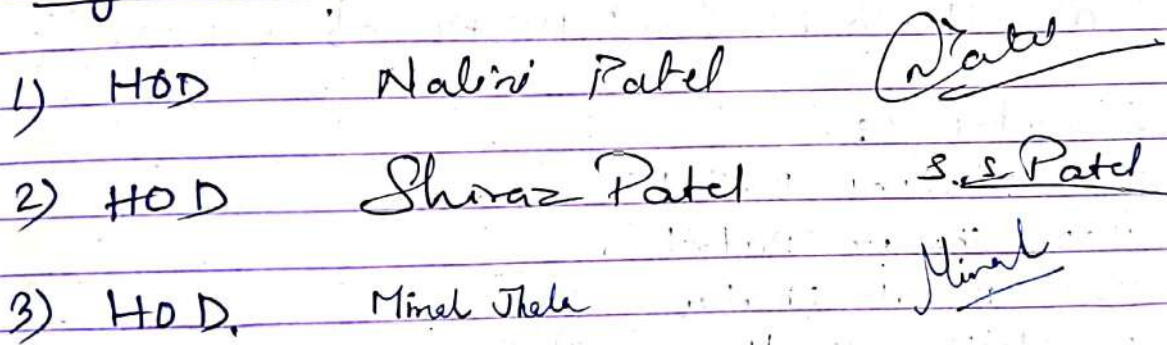 1) HOD Nalini Patel Patel
2) HOD Shiraz Patel S.S Patel
3) HOD. Minal Jhala Minal